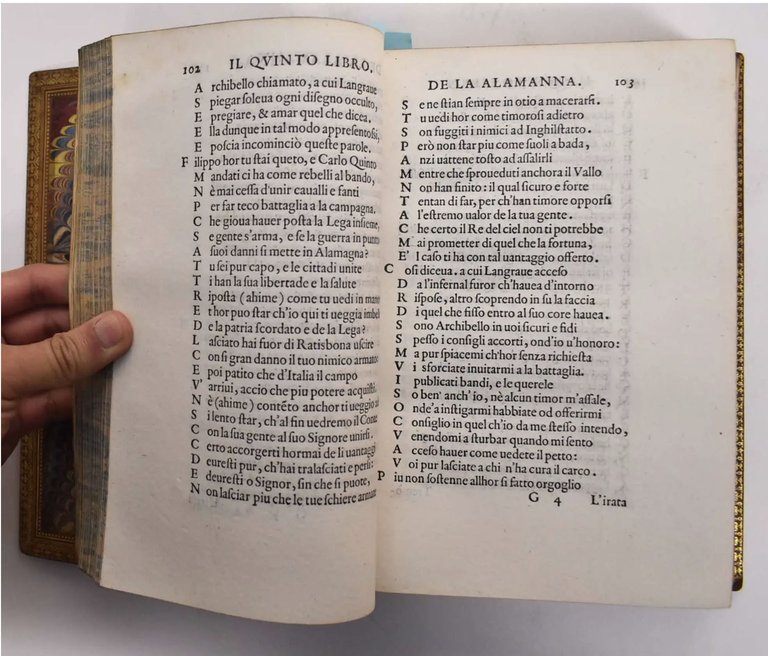 102 IL QVINTO LIBRO.
A rchibello chiamato, a cui Langraue
S piegar soleua ogni disegno occulto,
E pregiare, & amar quel che dicea.
E lla dunque in tal modo appresentosi,
E poscia incominciò queste parole.
F ilippo hor tu stai queto, e Carlo Quinto
M andati ci ha come rebelli al bando,
N è mai cessa d'unir caualli e fanti
P er far teco battaglia a la campagna.
C he gioua hauer posta la Lega insieme,
S e gente s'arma, e se la guerra in punto
A suoi danni si mette in Alamagna?
T u sei pur capo, e le cittadi unite
T i han la sua libertade e la salute
R iposta (ahime) come tu uedi in mano
E thor puo star ch'io qui ti ueggia imbel
D e la patria scordato e de la Lega?
L asciato hai fuor di Ratisbona uscire
C on si gran danno il tuo nimico armato
E poi patito che d'Italia il campo
V' arriui, accio che piu potere acquisti.
N è (ahime) contēto anchor ti ueggio al
S i lento star, ch'al fin uedremo il Conte
C on la sua gente al suo Signore unirsi.
C erto accorgerti hormai de li uantaggi
D euresti pur, ch'hai tralasciati e persi:
E deuresti o Signor, fin che si puote,
N on lasciar piu che le tue schiere armate
DE LA ALAMANNA. 103
S e ne stian sempre in otio a macerarsi.
T u uedi hor come timorosi adietro
S on fuggiti i nimici ad Inghilstatto.
P erò non star piu come suoli a bada,
A nzi uattene tosto ad assalirli
M entre che sproueduti anchora il Vallo
N on han finito: il qual sicuro e forte
T entan di far, per ch'han timore opporsi
A l'estremo ualor de la tua gente.
C he certo il Re del ciel non ti potrebbe
M ai prometter di quel che la fortuna,
E' l caso ti ha con tal uantaggio offerto.
C osi diceua. a cui Langraue acceso
D a l'infernal furor ch'hauea d'intorno
R ispose, altro scoprendo in su la faccia
D i quel che fisso entro al suo core hauea.
S ono Archibello in uoi sicuri e fidi
S pesso i consigli accorti, ond'io u'honoro:
M a pur spiacemi ch'hor senza richiesta
V i sforciate inuitarmi a la battaglia.
I publicati bandi, e le querele
S o ben' anch' io, nè alcun timor m'assale,
O nde'a instigarmi habbiate od offerirmi
C onsiglio in quel ch'io da me stesso intendo,
V enendomi a sturbar quando mi sento
A cceso hauer come uedete il petto:
V oi pur lasciate a chi n'ha cura il carco.
P iu non sostenne allhor si fatto orgoglio
G 4 L'irata